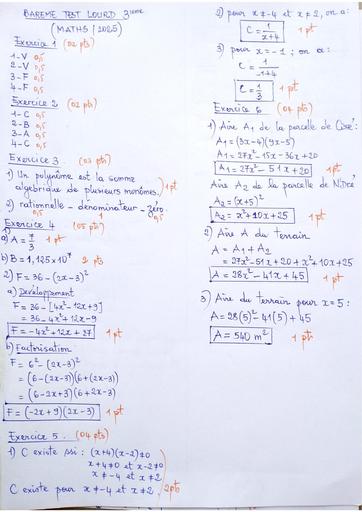 BAREME TEST LOURD 3ieme
(MATHS) 2025
Exercice 1 (02 pts)
1-V 0,5
2-V 0,5
3-F 0,5
4-F 0,5
Exercice 2 (02 pts)
1-C 0,5
2-B 0,5
3-A 0,5
4-C 0,5
Exercice 3 (03 pts)
1) Un polynôme est la somme
algébrique de plusieurs monômes. 1pt
2) rationnelle - dénominateur - zéro
0,5 1 0,5
Exercice 4 (05 pts)
1)
a) A = 7/3 1 pt
b) B = 1,125×10⁷ 2 pt
2) F = 36 - (2x-3)²
a) Développement
F = 36 - [4x² - 12x + 9]
= 36 - 4x² + 12x - 9
F = -4x² + 12x + 27 1 pt
b) Factorisation
F = 6² - (2x-3)²
= (6-(2x-3))(6+(2x-3))
= (6-2x+3)(6+2x-3)
F = (-2x+9)(2x-3) 1 pt
Exercice 5. (04 pts)
1) C existe ssi: (x+4)(x-2)≠0
x+4≠0 et x-2≠0
x≠-4 et x≠2
C existe pour x≠-4 et x≠2. 2pts
2) pour x≠-4 et x≠2, on a:
C = 1/(x+4) 1 pt
3) pour x=-1; on a:
C = 1/(-1+4)
C = 1/3 1 pt
Exercice 6 (04 pts)
1) Aire A₁ de la parcelle de
A₁ = (3x-4)(9x-5)
A₁ = 27x² - 15x - 36x + 20
A₁ = 27x² - 51x + 20 1 pt
Aire A₂ de la parcelle de
A₂ = (x+5)²
A₂ = x² + 10x + 25 1 pt
2) Aire A du terrain
A = A₁ + A₂
= 27x² - 51x + 20 + x² + 10x + 25
A = 28x² - 41x + 45 1 pt
3) Aire du terrain pour x=5:
A = 28(5)² - 41(5) + 45
A = 540 m² 1 pt